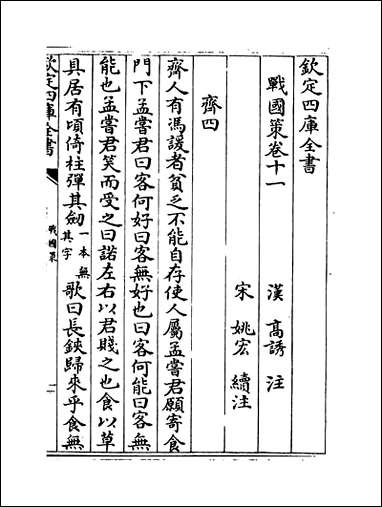 欽定四庫全書
戰國策卷十一
漢 高誘 注
宋 姚宏 續注
齊四
齊人有馮諼者貧乏不能自存使人屬孟嘗君願寄食
門下孟嘗君曰客何好曰客無好也曰客何能曰客無
能也孟嘗君笑而受之曰諾左右以君賤之也食以草
具居有頃倚柱彈其劒一本無其字歌曰長鋏歸來乎食無
欽定四庫全書
戰國策